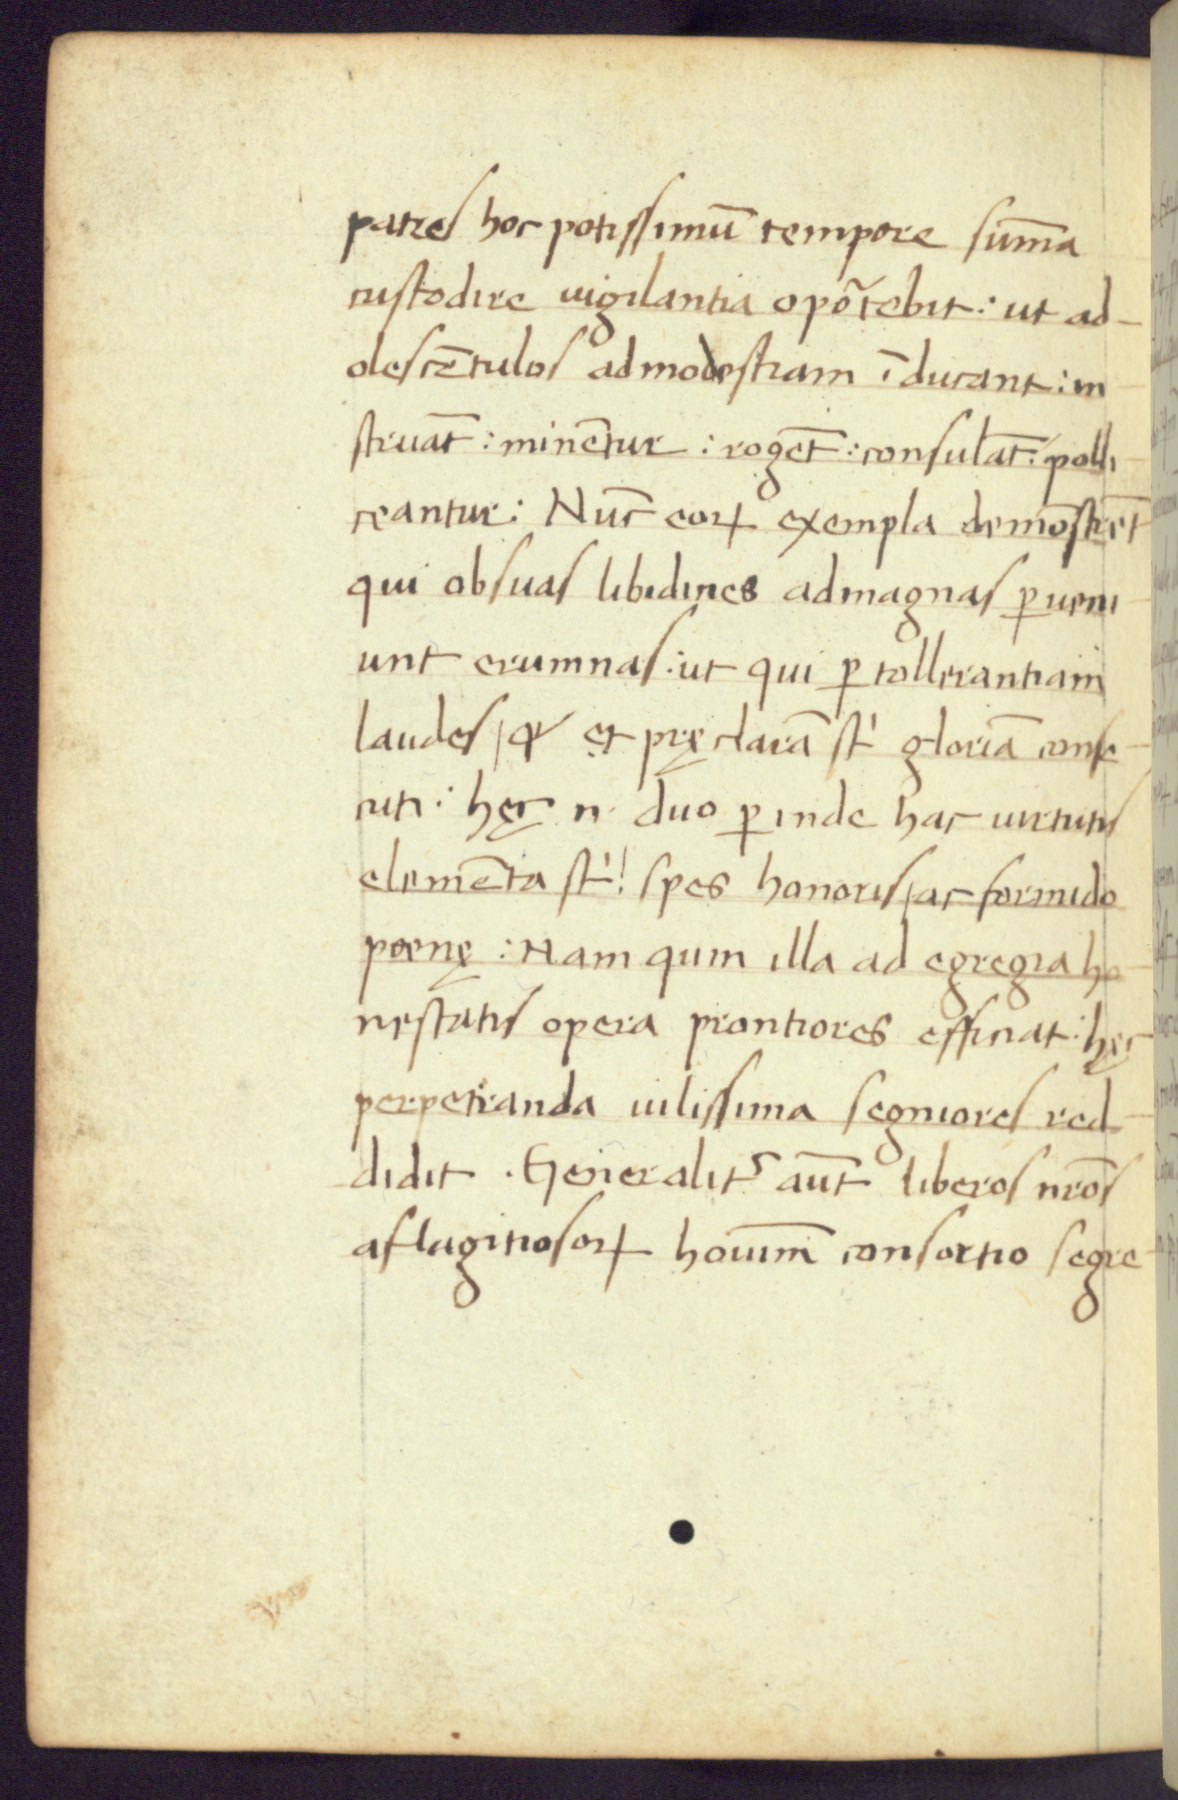 patres hoc potissimū tempore sum̄a
custodire uigilantia opōrtebit: ut ad-
olescētulos ad modestiam īducant: in
struāt: minētur: rogēt: consulāt: polli
ceantur: Nūc eorꝝ exempla demōstrēt
qui ob suas libidines ad magnas ꝑueni
unt erumnas: ut qui ꝑ tollerantiam
laudes, et pręclarā st' gloriā conse
cuti: hęc n. duo ꝑinde hac uirtutis
elemēta st'! spes honoris, ac formido
poenę: Nam qum illa ad egregia ho
nestatis opera promtiores efficiat: hęc
perpetranda uilissima segniores red
didit. Generalitʳ aūt liberos nr̄os
a flagitiosorꝝ hoīum̄ consortio segre